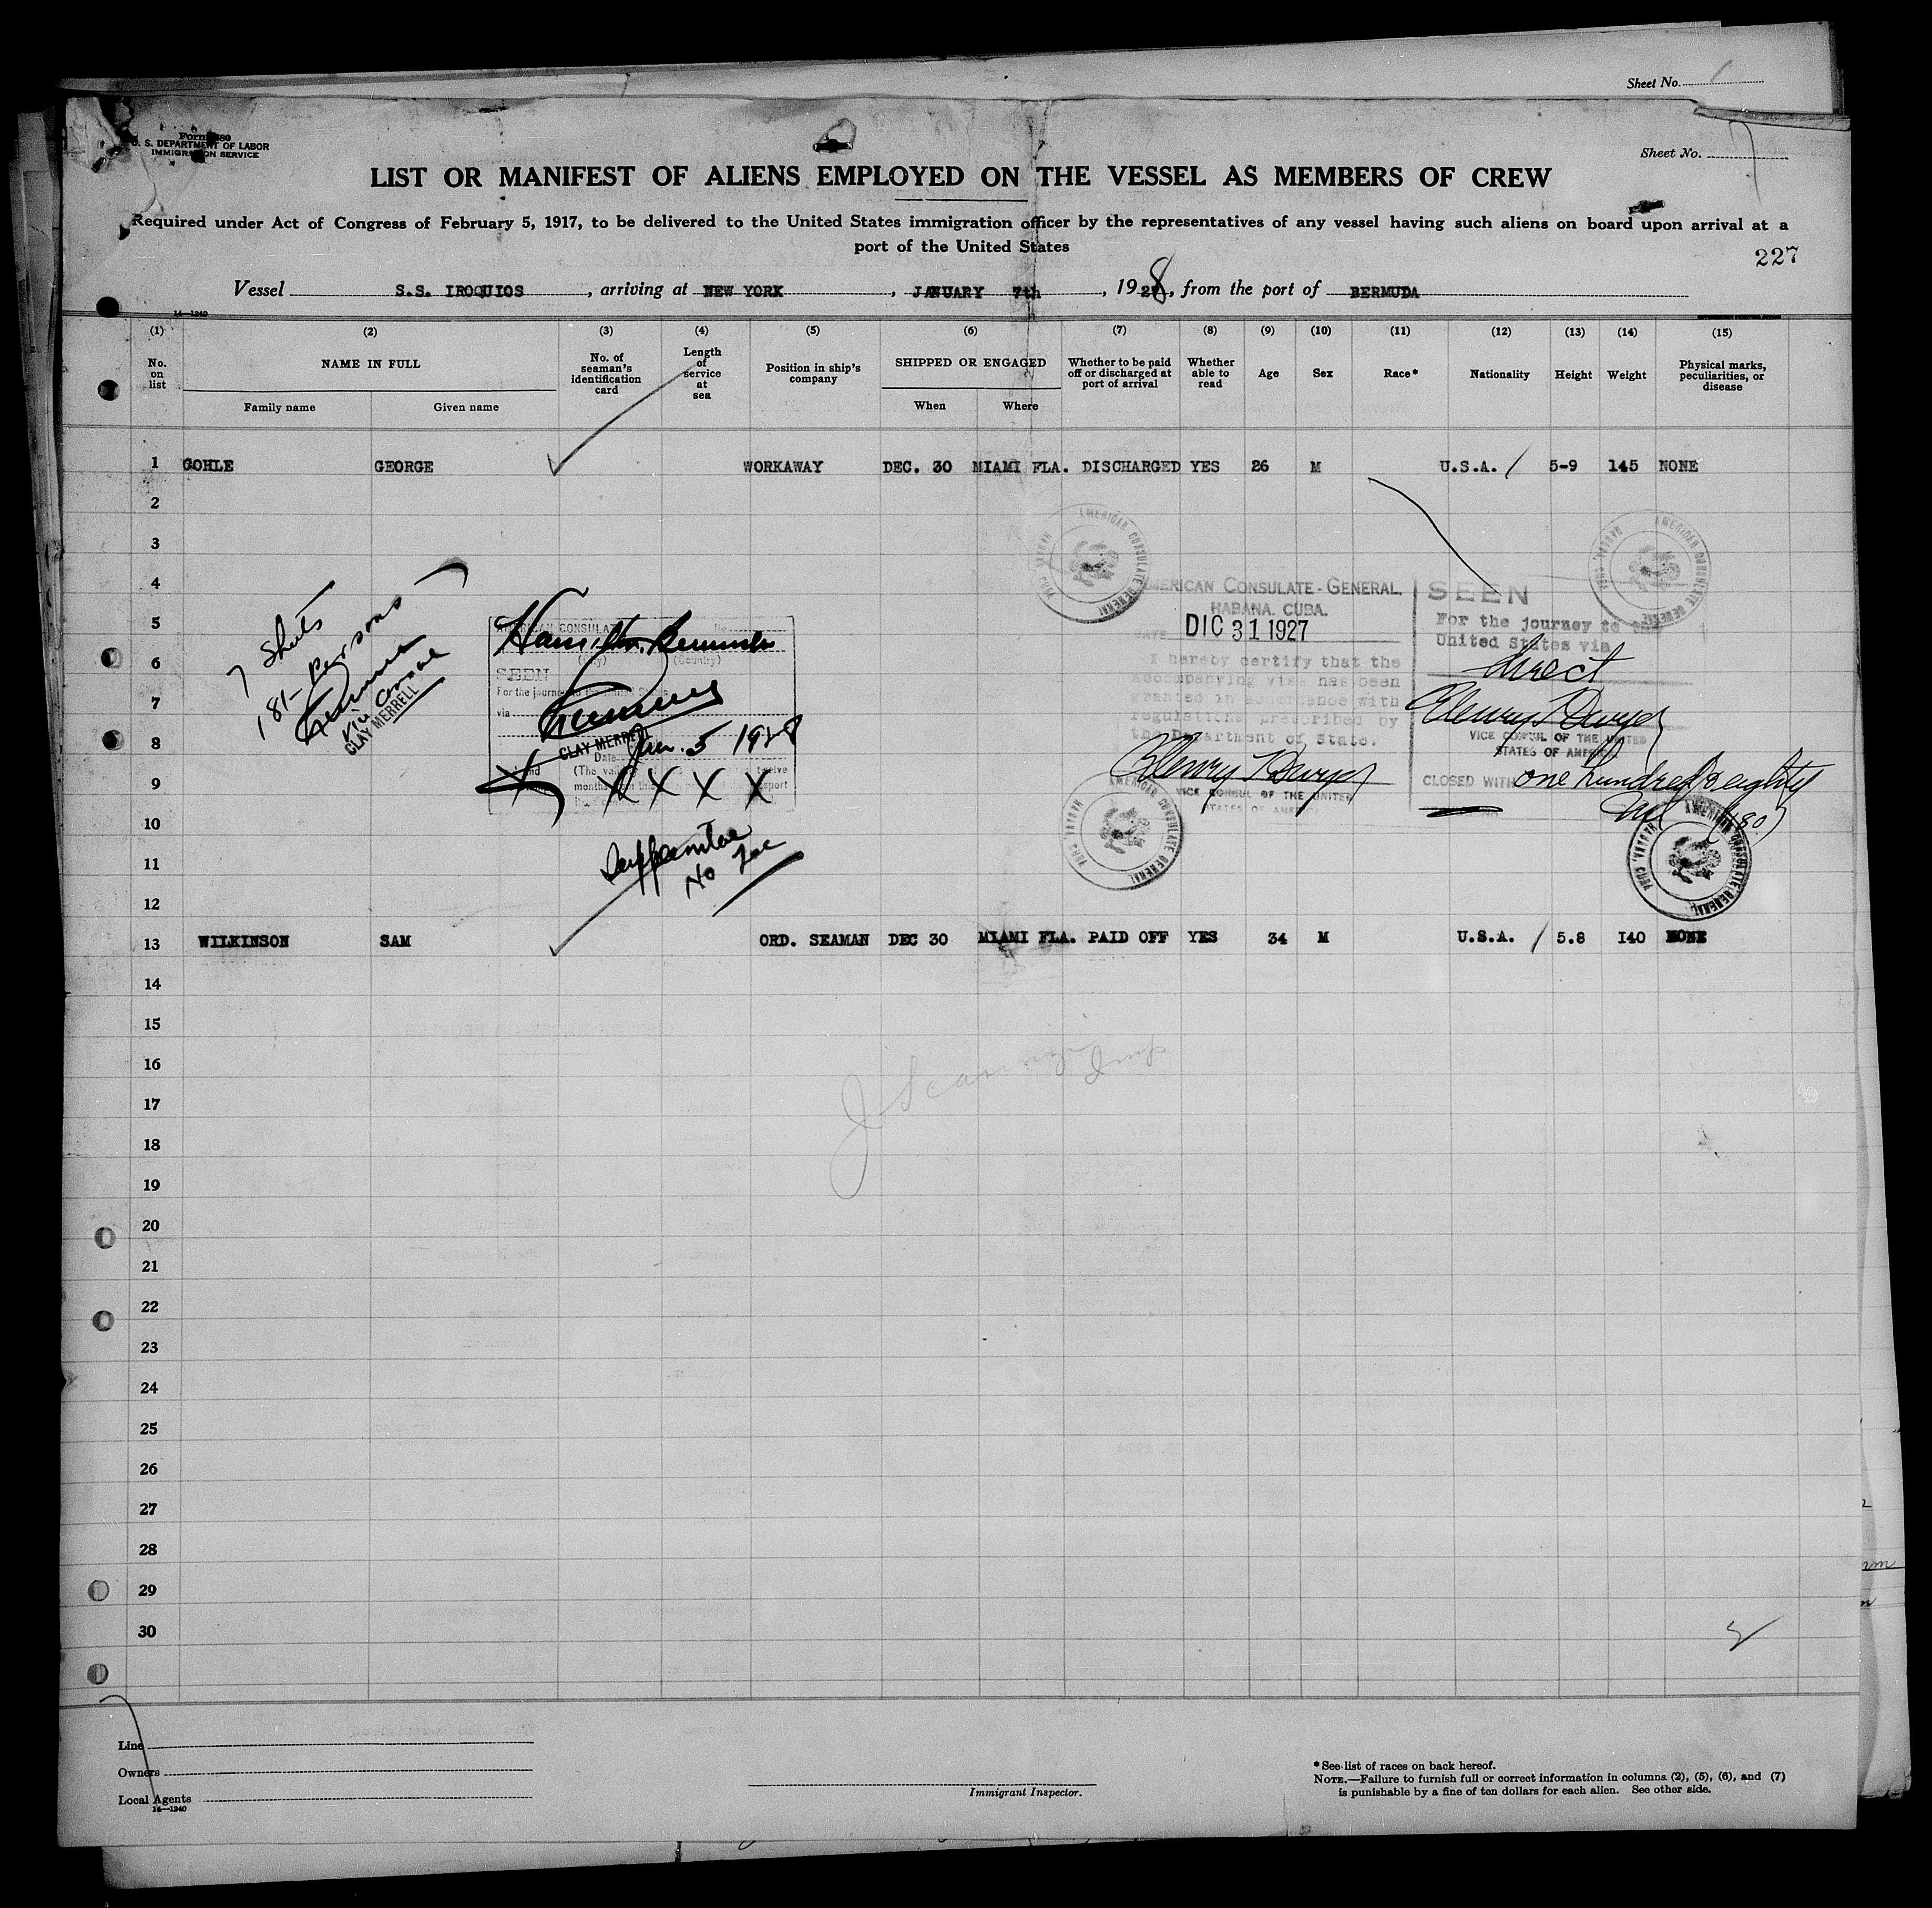 Sheet No.
Form 680
U. S. DEPARTMENT OF LABOR
IMMIGRATION SERVICE
Sheet No. 7
LIST OR MANIFEST OF ALIENS EMPLOYED ON THE VESSEL AS MEMBERS OF CREW
Required under Act of Congress of February 5, 1917, to be delivered to the United States immigration officer by the representatives of any vessel having such aliens on board upon arrival at a
port of the United States
227
Vessel S.S. IROQUIOS, arriving at NEW YORK, JANUARY 7th, 1928, from the port of BERMUDA
14—1240
(1) (2) (3) (4) (5) (6) (7) (8) (9) (10) (11) (12) (13) (14) (15)
No. on list
NAME IN FULL
Family name
Given name
No. of seaman's identification card
Length of service at sea
Position in ship's company
SHIPPED OR ENGAGED
When
Where
Whether to be paid off or discharged at port of arrival
Whether able to read
Age
Sex
Race*
Nationality
Height
Weight
Physical marks, peculiarities, or disease
1 GOHLE GEORGE WORKAWAY DEC. 30 MIAMI FLA. DISCHARGED YES 26 M U.S.A. 5-9 145 NONE
2
3
4
5
6
7
8
9
10
11
12
7 Sheets
181- persons
CLAY MERRELL
AMERICAN CONSULATE
Hamilton, Bermuda
(City) (Country)
SEEN
For the journey to the United States
via
CLAY MERRELL
Jan. 5 1928
Date
X X X X
No fee
AMERICAN CONSULATE GENERAL
HAVANA, CUBA
AMERICAN CONSULATE-GENERAL.
HABANA, CUBA.
DATE DIC 31 1927
I hereby certify that the
accompanying visa has been
granted in accordance with
regulations prescribed by
the Department of State.
VICE CONSUL OF THE UNITED
STATES OF AMERICA
AMERICAN CONSULATE GENERAL
HAVANA, CUBA
SEEN
For the journey to the
United States via
direct
VICE CONSUL OF THE UNITED
STATES OF AMERICA
CLOSED WITH one hundred & eighty
(180)
AMERICAN CONSULATE GENERAL
HAVANA, CUBA
AMERICAN CONSULATE GENERAL
HAVANA, CUBA
13 WILKINSON SAM ORD. SEAMAN DEC 30 MIAMI FLA. PAID OFF YES 34 M U.S.A. 5.8 140 NONE
14
15
16
17
18
19
20
21
22
23
24
25
26
27
28
29
30
Line
Owners
Local Agents
14—1240
Immigrant Inspector.
*See list of races on back hereof.
NOTE.—Failure to furnish full or correct information in columns (2), (5), (6), and (7)
is punishable by a fine of ten dollars for each alien. See other side.